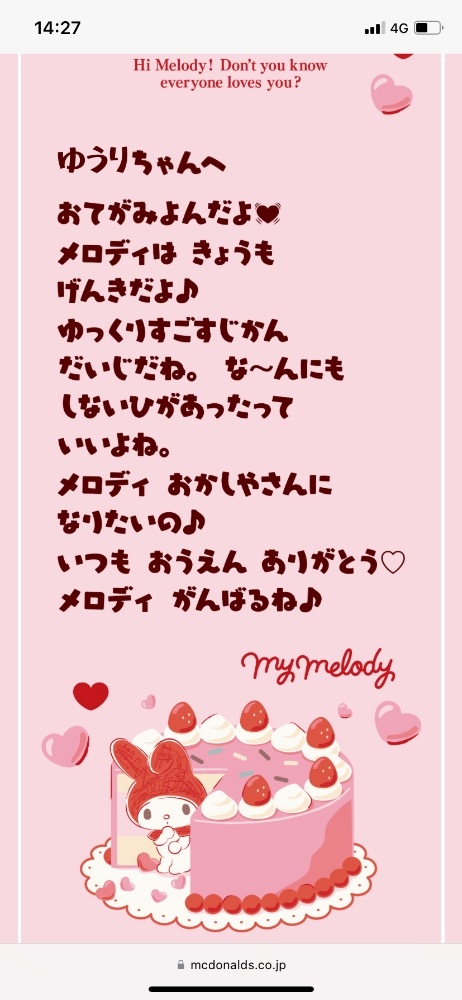 14:27
4G
Hi Melody! Don't you know
everyone loves you?
ゆうりちゃんへ
おてがみよんだよ💓
メロディは きょうも
げんきだよ♪
ゆっくりすごすじかん
だいじだね。 な〜んにも
しないひがあったって
いいよね。
メロディ おかしやさんに
なりたいの♪
いつも おうえん ありがとう♡
メロディ がんばるね♪
my melody
mcdonalds.co.jp